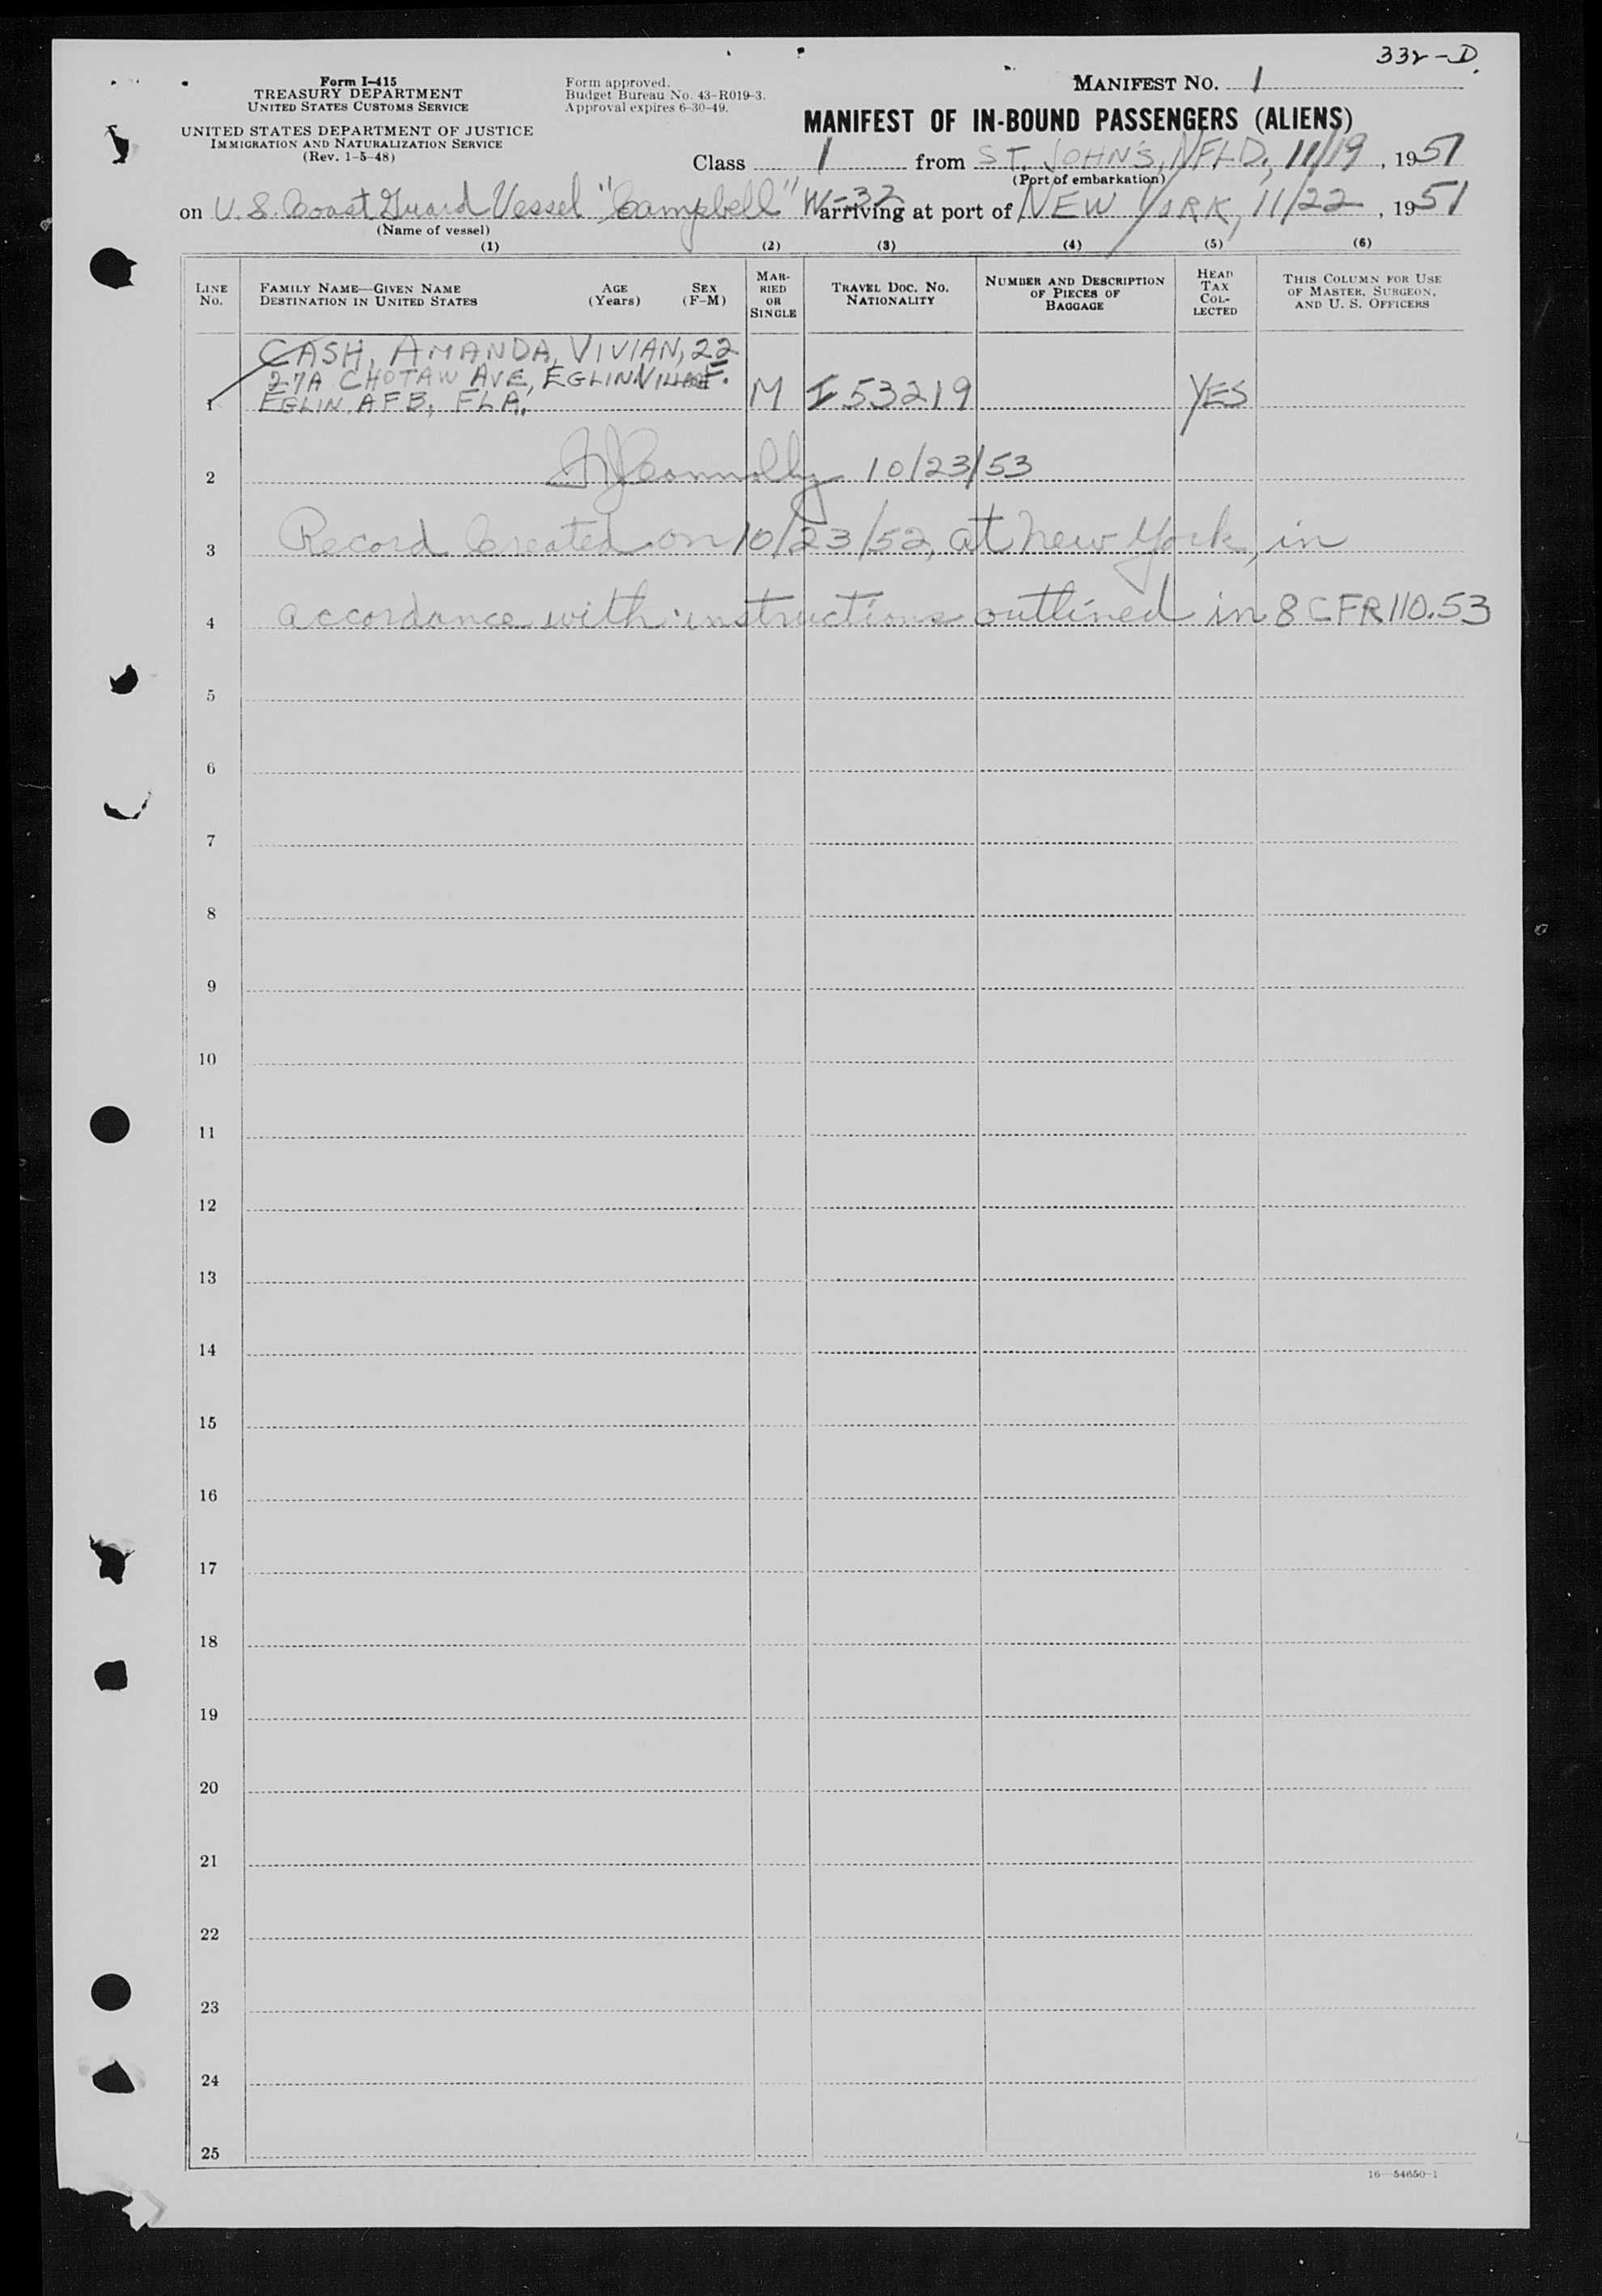 332-D.
Form I-415
TREASURY DEPARTMENT
UNITED STATES CUSTOMS SERVICE
Form approved.
Budget Bureau No. 43-R019-3.
Approval expires 6-30-49.
MANIFEST NO. 1
UNITED STATES DEPARTMENT OF JUSTICE
IMMIGRATION AND NATURALIZATION SERVICE
(Rev. 1-5-48)
MANIFEST OF IN-BOUND PASSENGERS (ALIENS)
Class 1 from ST. JOHN'S, NFLD, 11/19, 1951
(Port of embarkation)
on U.S. Coast Guard Vessel "Campbell" W-32 arriving at port of NEW YORK, 11/22, 1951
(Name of vessel)
(1) (2) (3) (4) (5) (6)
LINE NO.
FAMILY NAME—GIVEN NAME
DESTINATION IN UNITED STATES
AGE (Years)
SEX (F-M)
MARRIED OR SINGLE
TRAVEL DOC. NO.
NATIONALITY
NUMBER AND DESCRIPTION
OF PIECES OF
BAGGAGE
HEAD TAX COLLECTED
THIS COLUMN FOR USE
OF MASTER, SURGEON,
AND U. S. OFFICERS
CASH, AMANDA, VIVIAN, 22
27A CHOTAW AVE, EGLINVILLAGE F.
1 EGLIN AFB, FLA. M I 53219 YES
2 Connolly 10/23/53
3 Record Created on 10/23/52, at New York, in
4 accordance with instructions outlined in 8 CFR 110.53
5
6
7
8
9
10
11
12
13
14
15
16
17
18
19
20
21
22
23
24
25
16—54650-1